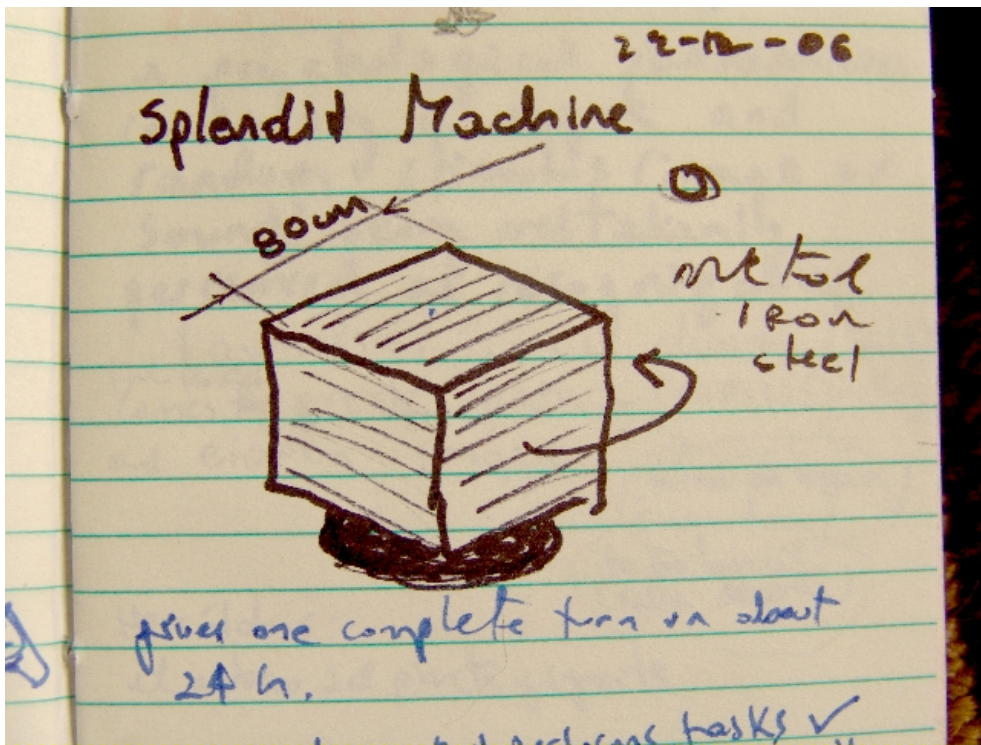 22-12-06
Splendid Machine
80cm
metal
iron
steel
gives one complete turn in about
24 h.
tasks ✓